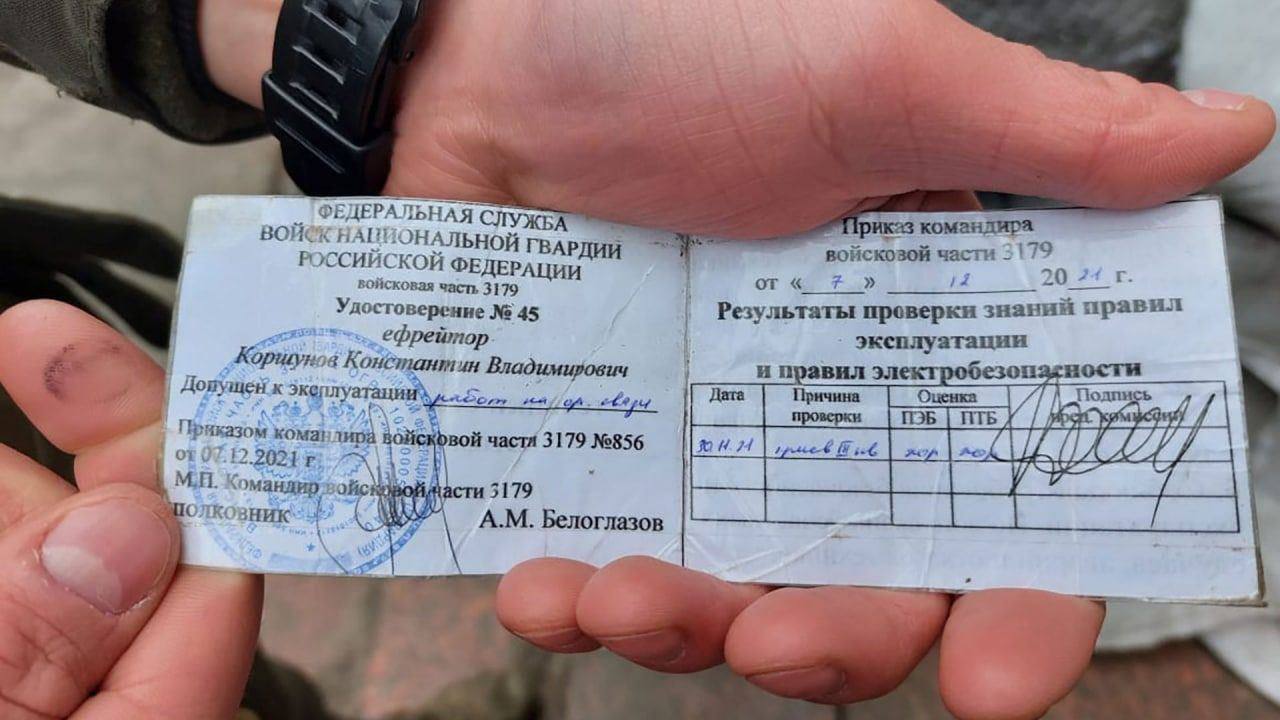 ФЕДЕРАЛЬНАЯ СЛУЖБА
ВОЙСК НАЦИОНАЛЬНОЙ ГВАРДИИ
РОССИЙСКОЙ ФЕДЕРАЦИИ
войсковая часть 3179
Удостоверение № 45
ефрейтор
Коршунов Константин Владимирович
Допущен к эксплуатации работ на ср. связи
Приказом командира войсковой части 3179 №856
от 07.12.2021 г
М.П. Командир войсковой части 3179
полковник А.М. Белоглазов
Приказ командира
войсковой части 3179
от « 7 » 12 2021 г.
Результаты проверки знаний правил
эксплуатации
и правил электробезопасности
Дата Причина проверки Оценка Подпись
ПЭБ ПТБ пред. комиссии
30.11.21 III кв хор хор